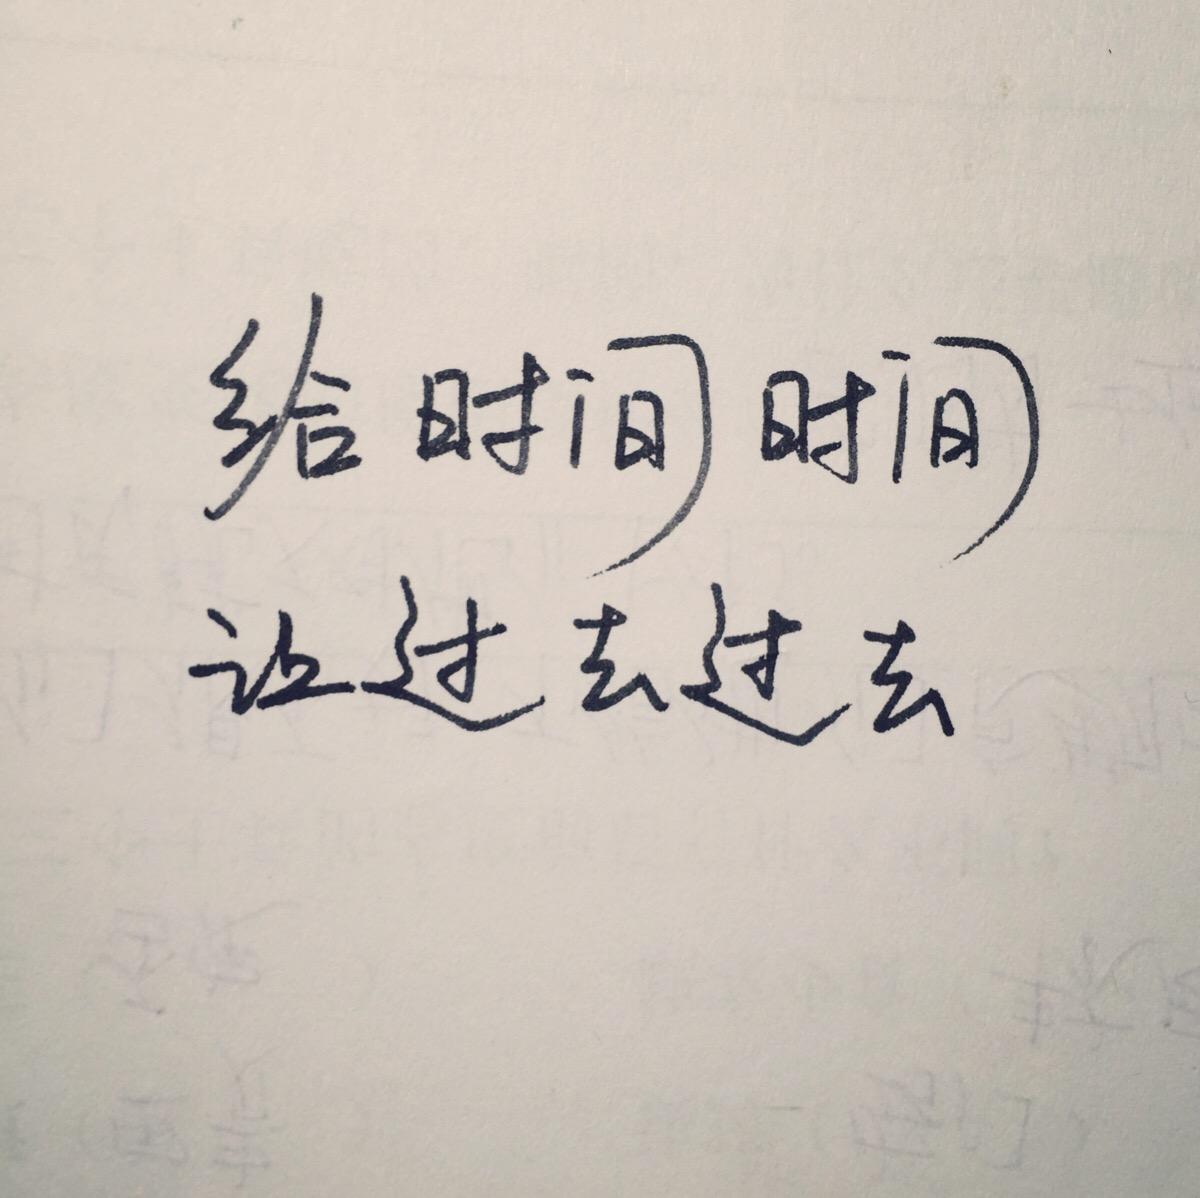 给时间时间
让过去过去